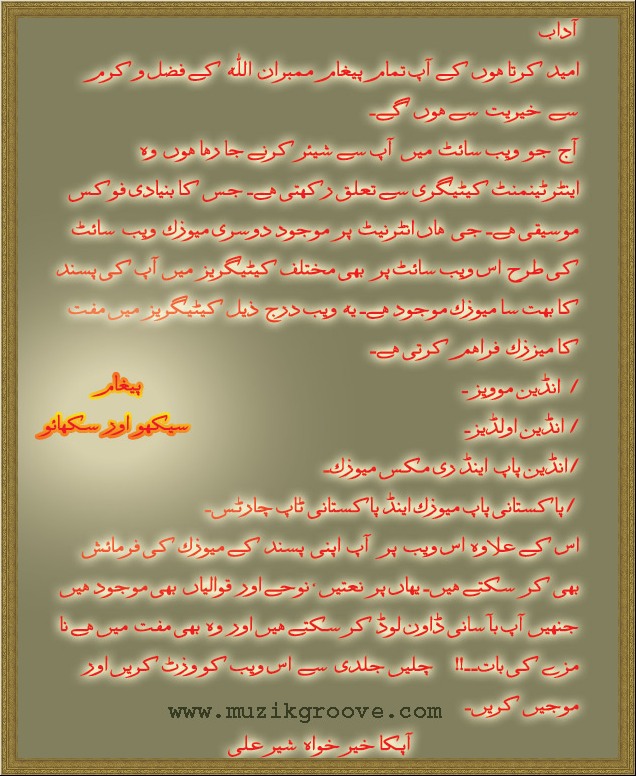 آداب
امید کرتا ہوں کے آپ تمام پیغام ممبران اللہ کے فضل و کرم
سے خیریت سے ہوں گے۔
آج جو ویب سائٹ میں آپ سے شیئر کرنے جا رہا ہوں وہ
اینٹرٹینمنٹ کیٹیگری سے تعلق رکھتی ہے۔ جس کا بنیادی فوکس
موسیقی ہے۔ جی ہاں انٹرنیٹ پر موجود دوسری میوزک ویب سائٹ
کی طرح اس ویب سائٹ پر بھی مختلف کیٹیگریز میں آپ کی پسند
کا بہت سا میوزک موجود ہے۔ یہ ویب درج ذیل کیٹیگریز میں مفت
کا میززک فراہم کرتی ہے۔
/ انڈین موویز۔
/ انڈین اولڈیز۔
/انڈین پاپ اینڈ ری مکس میوزک۔
/پاکستانی پاپ میوزک اینڈ پاکستانی ٹاپ چارٹس۔
اس کے علاوہ اس ویب پر آپ اپنی پسند کے میوزک کی فرمائش
بھی کر سکتے ہیں۔ یہاں پر نعتیں ٬ نوحے اور قوالیاں بھی موجود ہیں
جنہیں آپ بآسانی ڈاون لوڈ کر سکتے ہیں اور وہ بھی مفت میں ہے نا
مزے کی بات۔۔!! چلیں جلدی سے اس ویب کو وزٹ کریں اور
موجیں کریں۔ www.muzikgroove.com
آپکا خیر خواہ شیر علی
پیغام
سیکھو اور سکھائو